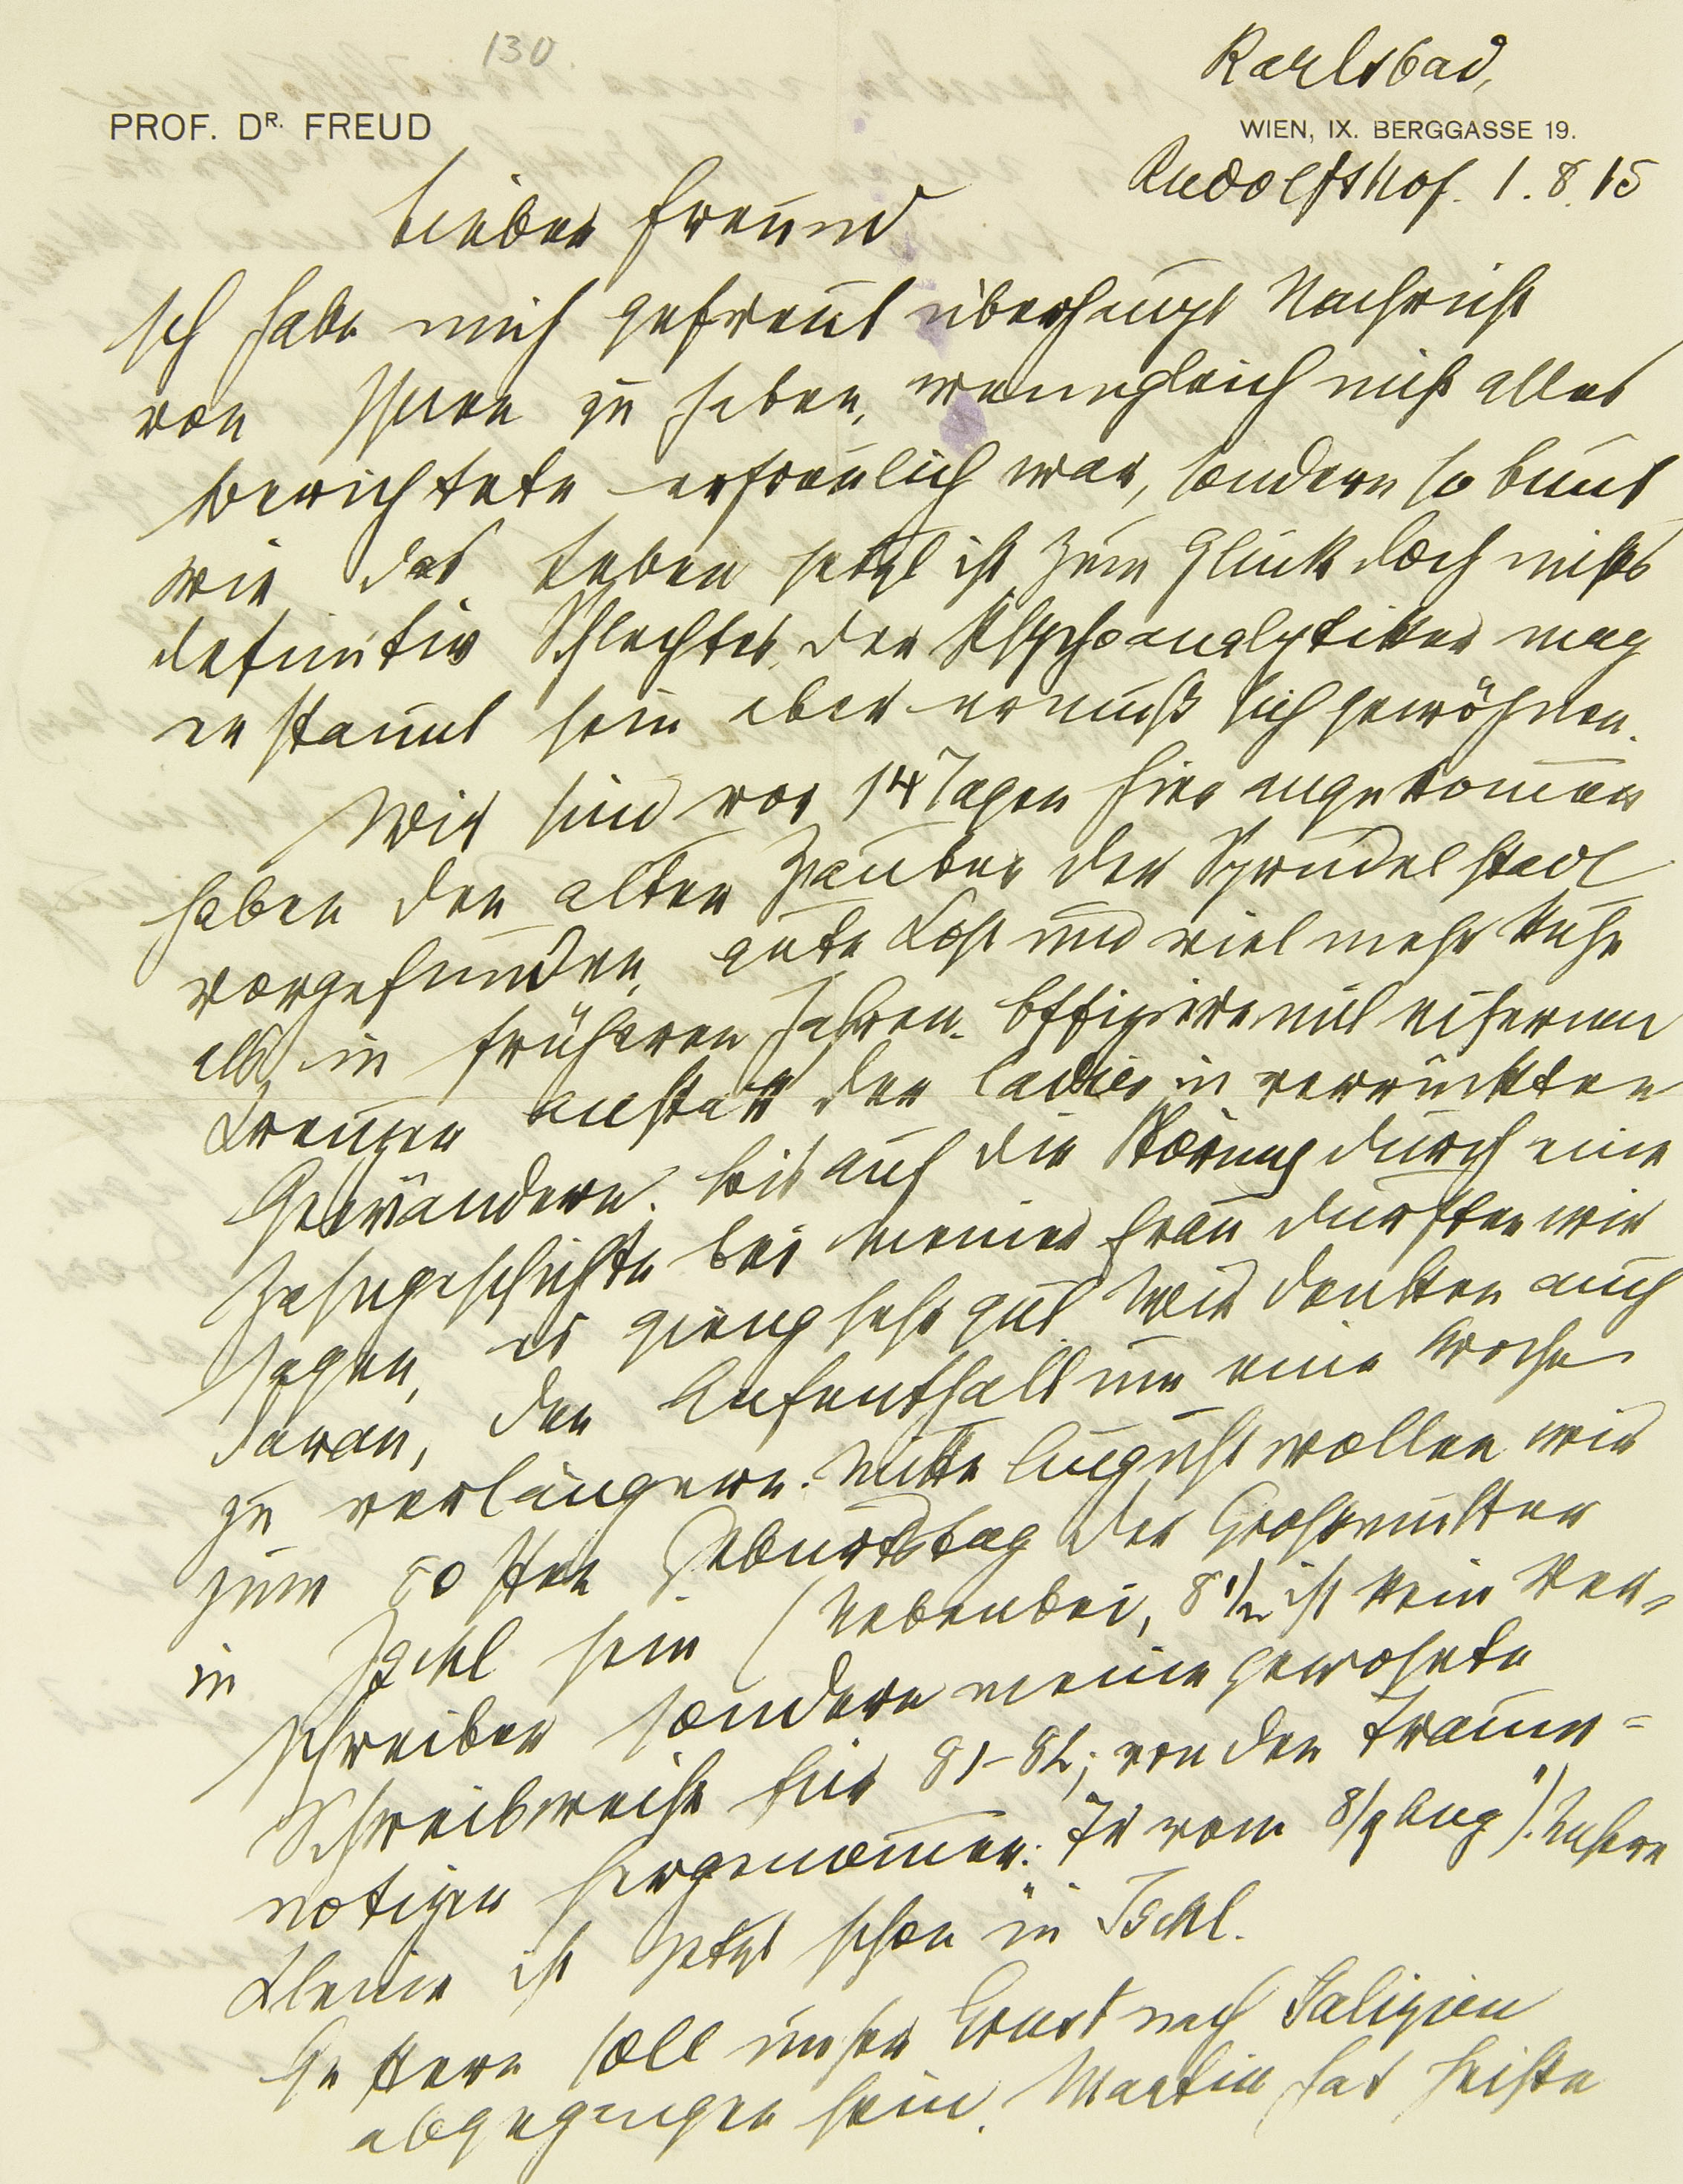 130
Karlsbad,
PROF. DR. FREUD
WIEN, IX. BERGGASSE 19.
Rudolfshof. 1.8.15
Lieber Freund
Ich habe mich gefreut überhaupt Nachricht
von Ihnen zu haben, wenngleich nicht alles
Berichtete erfreulich war, sondern so bunt
wie das Leben jetzt ist zum Glück doch nichts
definitiv Schlechtes. Der Psychoanalytiker mag
erstaunt sein aber er muß sich gewöhnen.
Wir sind vor 14 Tagen hier angekommen
haben den alten Zauber der Sprudelstadt
vorgefunden, gute Kost und viel mehr Ruhe
als in früheren Jahren. Offiziere mit eisernen
Kreuzen anstatt der Ladies in verrückten
Gewändern. Bis auf die Störung durch eine
Zahngeschichte bei meiner Frau durften wir
sagen, es gieng sehr gut. Wir denken auch
daran, den Aufenthalt um eine Woche
zu verlängern. Mitte August wollen wir
zum 80sten Geburtstag der Großmutter
in Ischl sein (Nebenbei, 8 1/2 ist kein Ver-
schreiben sondern meine gewohnte
Schreibweise für 81-82; von den Traum=
notizen hergenommen: Tr vom 8/9 Aug"). Unsere
Kleine ist jetzt schon in Ischl.
Gestern soll unser Ernst nach Galizien
abgegangen sein. Martin hat heiße